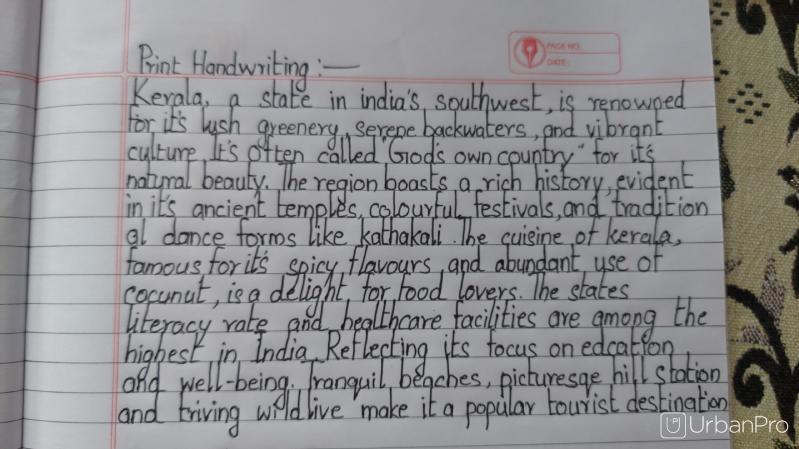 PAGE NO.
DATE:
Print Handwriting :—
Kerala, a state in india's southwest, is renowned
for it's lush greenery, serene backwaters, and vibrant
culture. It's often called "God's own country" for it's
natural beauty. The region boasts a rich history, evident
in it's ancient temples, colourful festivals, and tradition
al dance forms like kathakali. The cuisine of kerala,
famous for it's spicy flavours, and abundant use of
cocunut, is a delight for food lovers. The states
literacy rate and healthcare facilities are among the
highest in India. Reflecting its focus on edcation
and well-being. Tranquil beaches, picturesqe hill station
and triving wildlive make it a popular tourist destination
UrbanPro